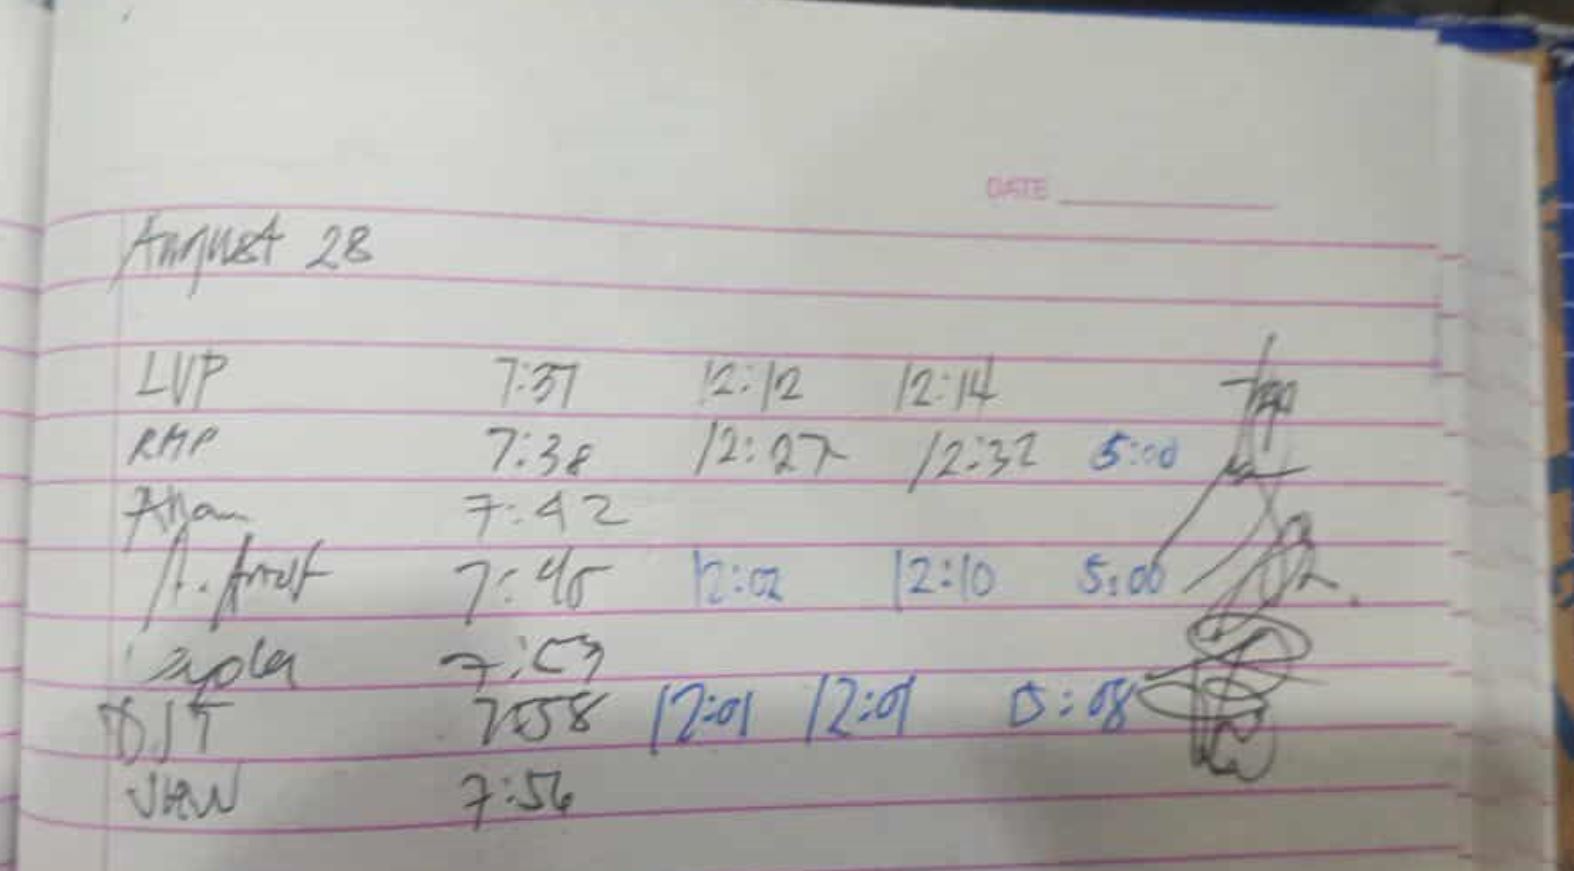 DATE
August 28
LVP 7:37 12:12 12:14
RMP 7:38 12:27 12:32 5:00
Allan 7:42
7:45 12:02 12:10 5:00
7:53
DJT 7:58 12:01 12:01 5:08
7:56